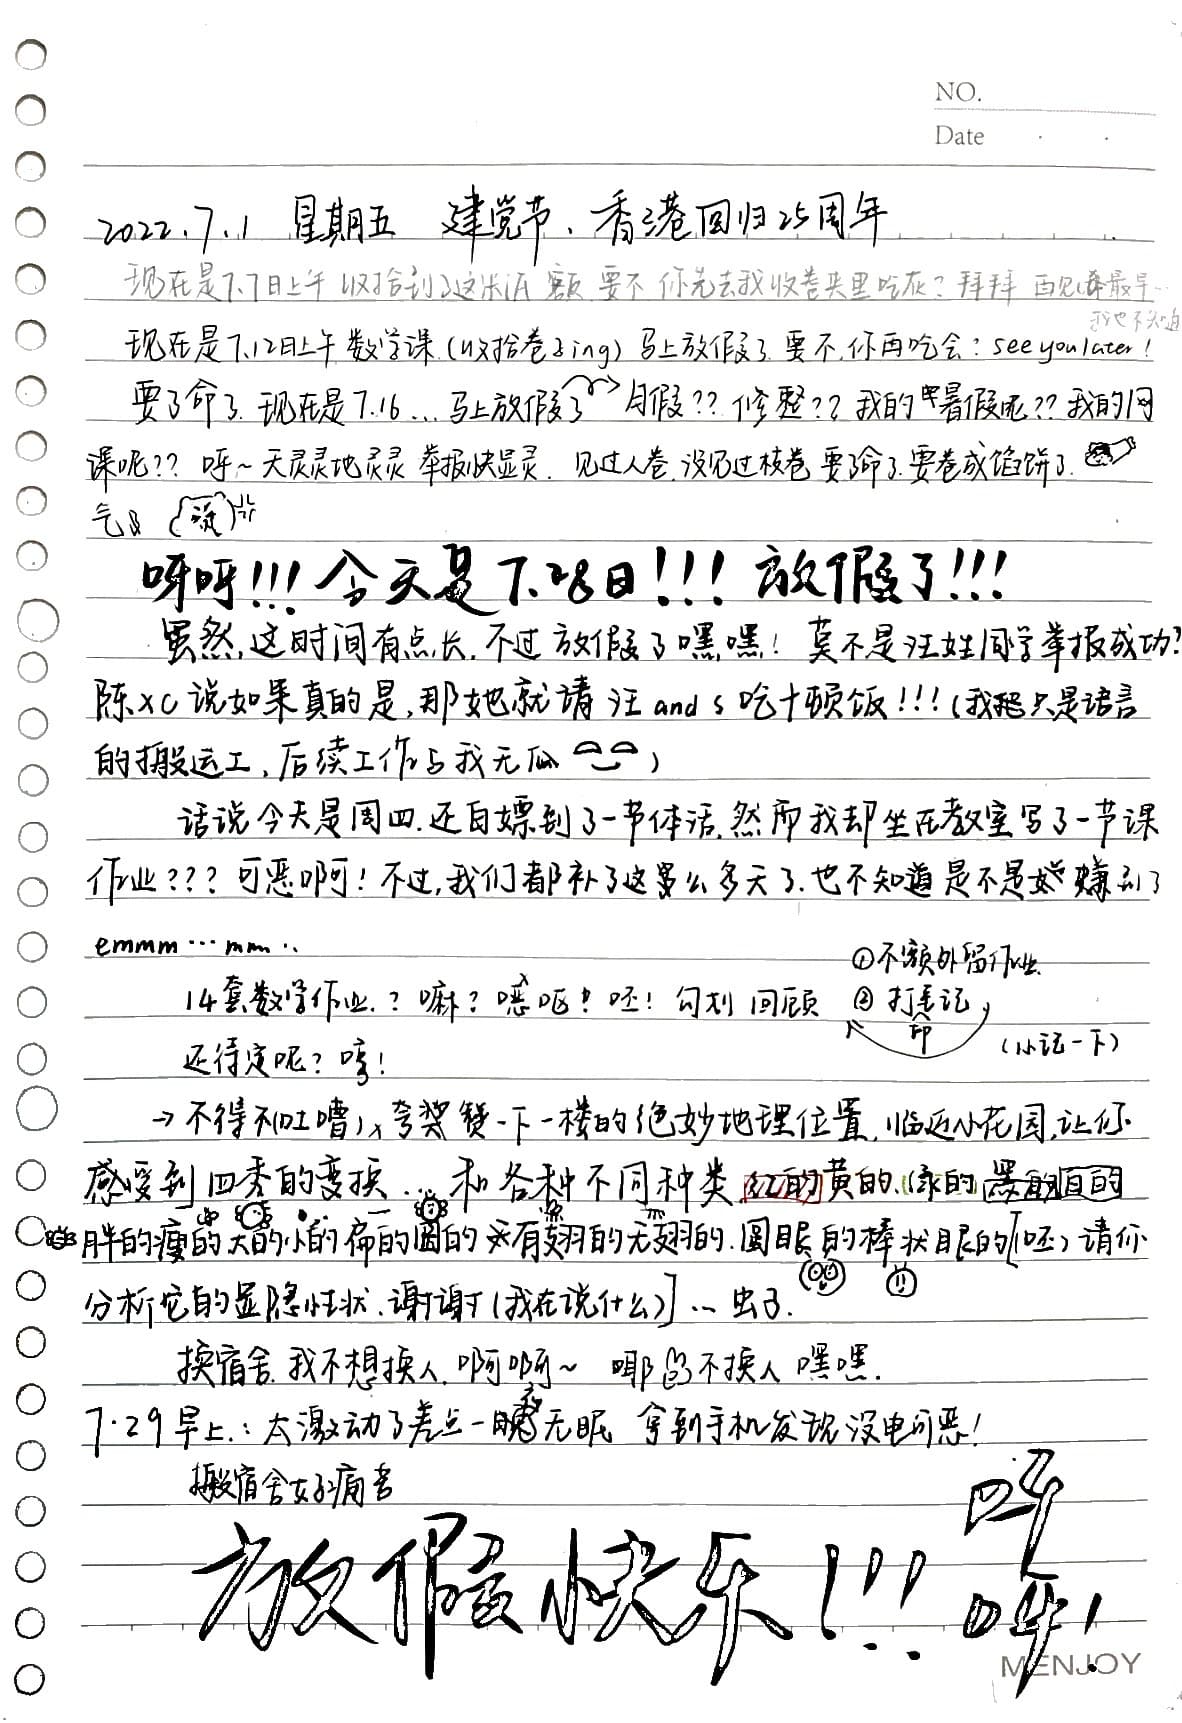 NO.
Date
2022.7.1 星期五 建党节、香港回归25周年
现在是7.7日上午 收拾到了这张活 额 要不 你先去我收卷夹里吃灰? 拜拜 再见(希最早…
我也不知道
现在是7.12日上午 数学课 (收拾卷子ing) 马上放假了 要不,你再吃会? see you later!
要了命了 现在是7.16… 马上放假了 月假?? 修整?? 我的 暑假呢?? 我的网
课呢?? 呀~天灵灵地灵灵 举报快显灵. 见过人卷,没见过校卷 要了命了 要卷成馅饼了.
气
呀呀!!! 今天是7.28日!!! 放假了!!!
虽然,这时间有点长,不过 放假了嘿嘿! 莫不是汪姓同学举报成功?
陈xc 说如果真的是,那她就请 汪 and s 吃十顿饭!!! (我 只是语言
的搬运工, 后续工作与我无瓜 )
话说今天是周四,还白嫖到了一节体活,然而我却坐在教室写了一节课
作业??? 可恶啊! 不过,我们都补了这 么多天了,也不知道是不是 赚到了
emmm…mm..
①不额外留作业
14套数学作业.? 嘛? 恶呕! 呸! 勾划 回顾 ② 打 记
印
(小记一下)
还待定呢? 哼!
→不得不(吐嘈)、夸奖赞一下一楼的绝妙地理位置,临近小花园,让你
感受到四季的变换… 和各种不同种类 红的 黄的、绿的 黑的 白的
胖的瘦的大的小的扁的圆的 有翅的无翅的.圆眼的棒状眼的[(呸) 请你
分析它的显隐性状.谢谢(我在说什么)]… 虫子.
换宿舍.我不想换人.啊啊~ 耶 不换人 嘿嘿.
7.29早上.: 太激动了差点一夜无眠 拿到手机发现没电可恶!
搬宿舍好痛苦
放假快乐!!!
呀
呀!
MENJOY